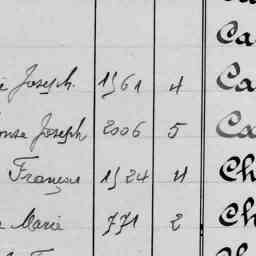 Ca
Joseph 1561 4 Ca
Joseph 2006 5 Ca
François 1524 4 Ch
Marie 771 2 Ch